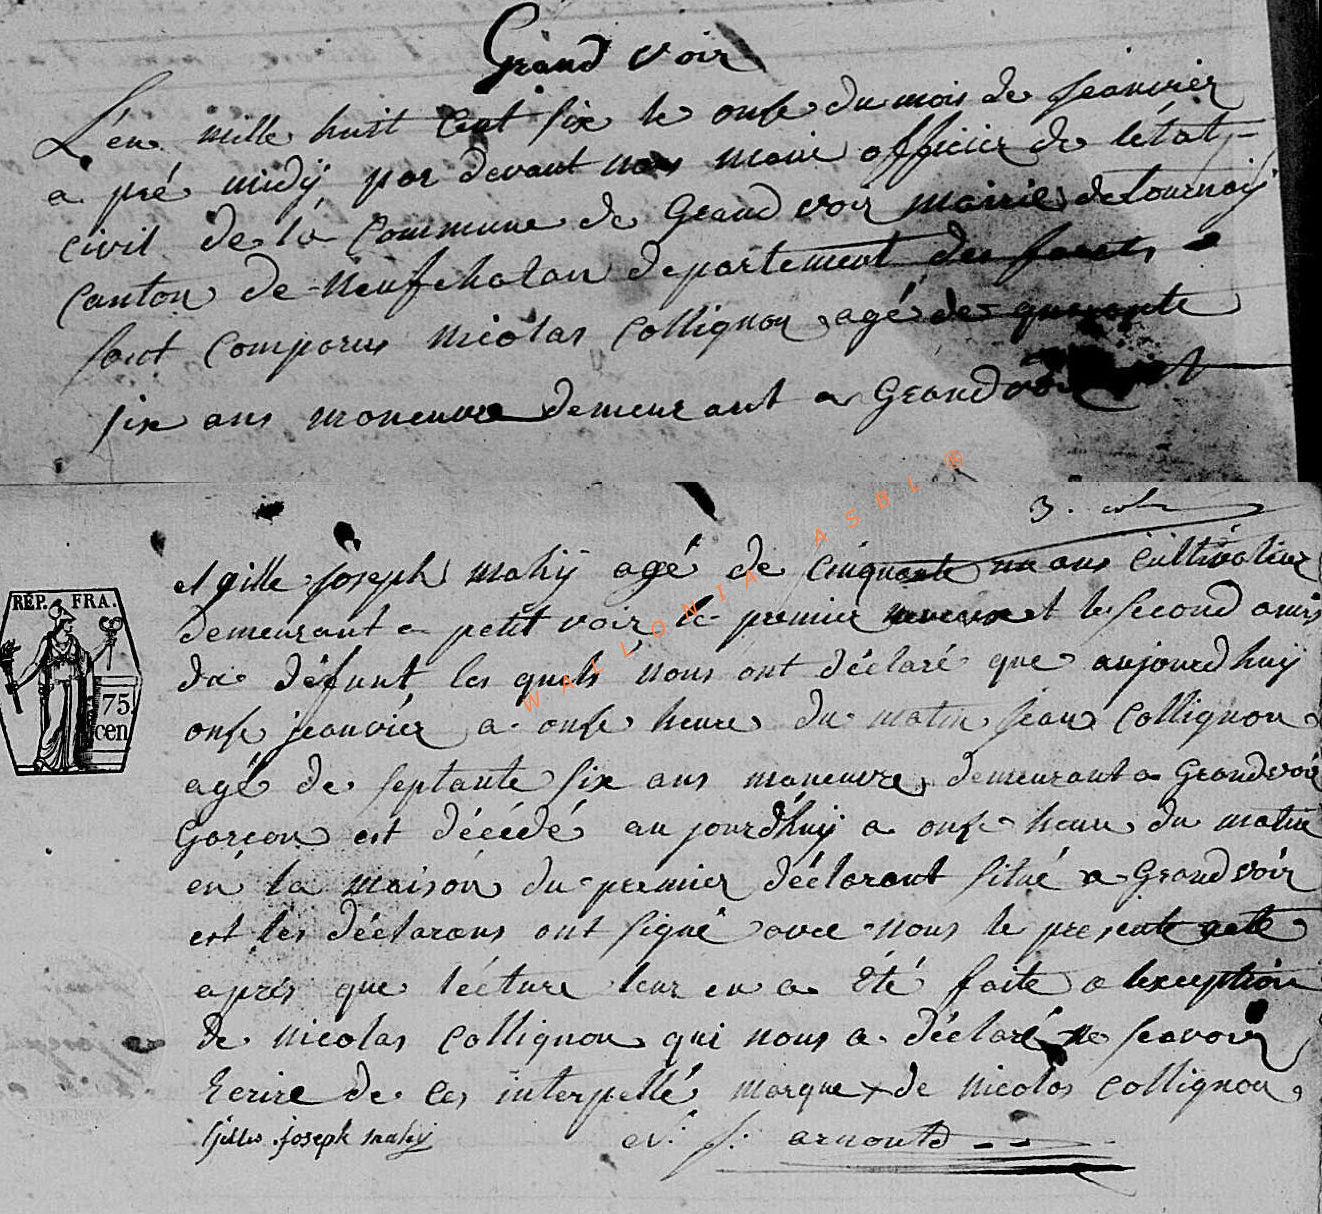 Grand voir
L'én mille huit Cent six le onse du mois de jeanviér
a pré midÿ par devant nous maire officiér de létat
civil de la Commune de Grand voir mairie de tournaÿ
Canton de Neufchatau departement des forets
sont comparus nicolas Collignon agé de quarante
six ans maneuvre demeurant a Grandvoir
3. role
et gille joseph mahÿ agé de Cinquante un ans Cultivateur
demeurant a petit voir le premier neveux et le second amis
du défunt les quels nous ont déclaré que aujourdhuÿ
onse jeanviér a onse heure du matin jean Collignon
agé de septante six ans maneuvre demeurant a Grandvoir
Garcon est décédé aujourdhuÿ a onse heure du matin
én la maison du premier déclarant situé a Grandvoir
est les déclarans ont signé avec nous le presente acte
aprés que lécture leur en a été faite a léxception
de nicolas Collignon qui nous a déclaré ne scavoir
Ecrire de ces interpellé marque x de nicolas Collignon
Gilles joseph mahÿ
arnould
RÉP. FRA.
75
cen
WALLONIA ASBL ®